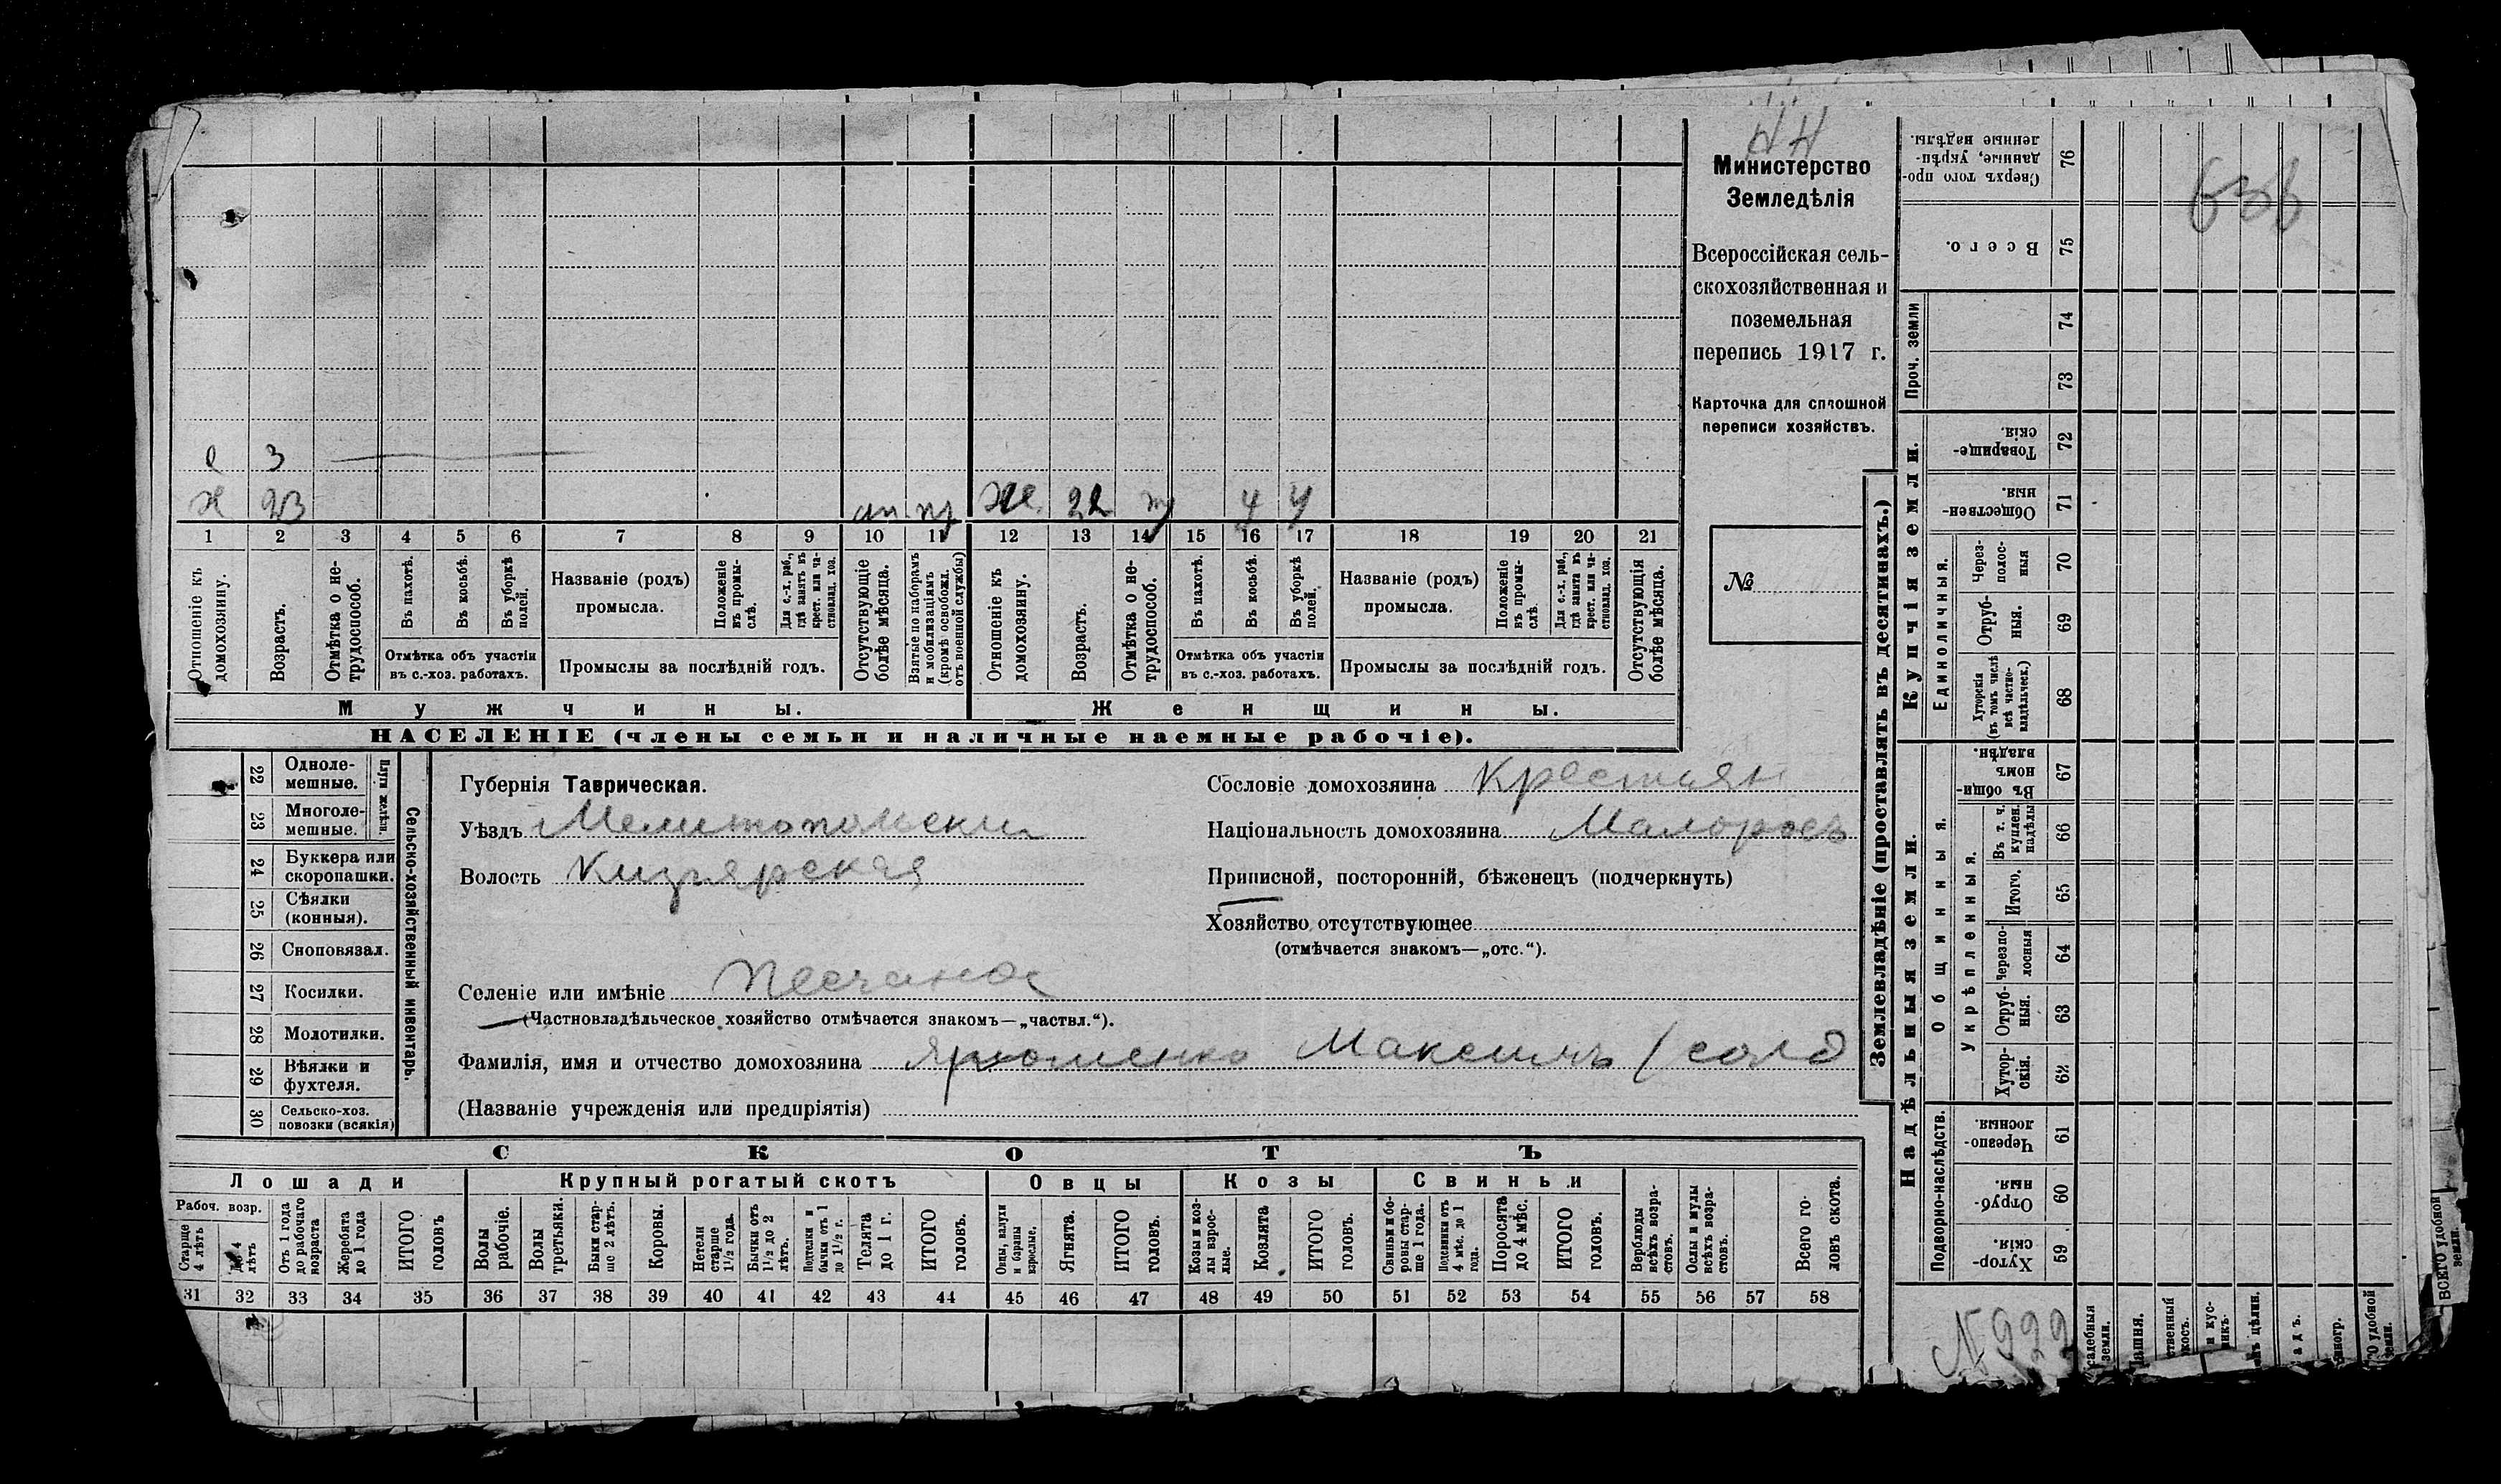 НН
Министерство
Земледѣлія
Всероссійская сель-
скохозяйственная и
поземельная
перепись 1917 г.
Карточка для сплошной
переписи хозяйствъ.
№
с 3
х 23 отп. пр Же. 22 4 4
1 2 3 4 5 6 7 8 9 10 11 12 13 14 15 16 17 18 19 20 21
Отношеніе къ домохозяину.
Возрастъ.
Отмѣтка о не-трудоспособ.
Въ пахотѣ.
Въ косьбѣ.
Въ уборкѣ полей.
Отмѣтка объ участіи
въ с.-хоз. работахъ.
Названіе (родъ)
промысла.
Положеніе въ промы-слѣ.
Для с.-х. раб., гдѣ занятъ въ крест. или ча-стновлад. хоз.
Промыслы за послѣдній годъ.
Отсутствующіе болѣе мѣсяца.
Взятые по наборамъ и мобилизаціямъ (кромѣ освобожд. отъ военной службы)
Отношеніе къ домохозяину.
Возрастъ.
Отмѣтка о не-трудоспособ.
Въ пахотѣ.
Въ косьбѣ.
Въ уборкѣ полей.
Отмѣтка объ участіи
въ с.-хоз. работахъ.
Названіе (родъ)
промысла.
Положеніе въ промы-слѣ.
Для с.-х. раб., гдѣ занята въ крест. или ча-стновлад. хоз.
Промыслы за послѣдній годъ.
Отсутствующія болѣе мѣсяца.
Мужчины.
Женщины.
НАСЕЛЕНІЕ (члены семьи и наличные наемные рабочіе).
Сельско-хозяйственный инвентарь.
Плуги желѣзн.
22 Одноле-
мешные.
23 Многоле-
мешные.
24 Буккера или
скоропашки.
25 Сѣялки
(конныя).
26 Сноповязал.
27 Косилки.
28 Молотилки.
29 Вѣялки и
фухтеля.
30 Сельско-хоз.
повозки (всякія)
Губернія Таврическая.
Уѣздъ Мелитопольскій
Волость Кизіярская
Сословіе домохозяина Крестьян
Національность домохозяина Малоросъ
Приписной, посторонній, бѣженецъ (подчеркнуть)
Хозяйство отсутствующее
(отмѣчается знакомъ—„отс.“).
Селеніе или имѣніе Песчаное
(Частновладѣльческое хозяйство отмѣчается знакомъ—„частвл.“).
Фамилія, имя и отчество домохозяина Яременко Максимъ / солд
(Названіе учрежденія или предпріятія)
СКОТЪ
Лошади
Крупный рогатый скотъ
Овцы
Козы
Свиньи
Рабоч. возр.
Старше 4 лѣтъ
До 4 лѣтъ
Отъ 1 года до рабочаго возраста
Жеребята до 1 года
ИТОГО головъ
Волы рабочіе.
Волы третьяки.
Быки стар-ше 2 лѣтъ.
Коровы.
Нетели старше 1½ года.
Бычки отъ 1½ до 2 лѣтъ.
Подтелки и бычки отъ 1 до 1½ г.
Телята до 1 г.
ИТОГО головъ.
Овцы, валухи и бараны взрослые.
Ягнята.
ИТОГО головъ.
Козы и коз-лы взрос-лые.
Козлята
ИТОГО головъ.
Свиньи и бо-ровы стар-ше 1 года.
Подсвинки отъ 4 мѣс. до 1 года.
Поросята до 4 мѣс.
ИТОГО головъ.
Верблюды всѣхъ возра-стовъ.
Ослы и мулы всѣхъ возра-стовъ.
Всего го-ловъ скота.
31 32 33 34 35 36 37 38 39 40 41 42 43 44 45 46 47 48 49 50 51 52 53 54 55 56 57 58
Землевладѣніе (проставлять въ десятинахъ.)
Надѣльныя земли.
Купчія земли.
Проч. земли
Подворно-наслѣдств.
Общинныя.
Укрѣпленныя.
Единоличныя.
Сверхъ того про-данные, укрѣп-ленные надѣлы. 76
Всего. 75
74
73
Товарище-скія. 72
Обществен-ныя. 71
Через-полос-ныя 70
Отруб-ныя. 69
Хуторскія (въ томъ числѣ всѣ частно-владѣльческ.) 68
Въ общин-номъ владѣн. 67
Въ т. ч. куплен. надѣлы 66
Итого. 65
Черезпо-лосныя 64
Отруб-ныя. 63
Хутор-скія. 62
Черезпо-лосныя. 61
Отруб-ныя. 60
Хутор-скія. 59
садебныя земли.
Пашня.
N 999
ВСЕГО удобной земли.